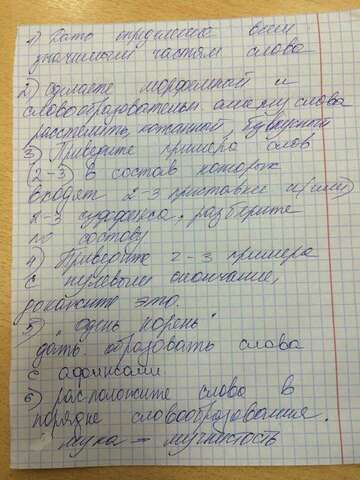 1) Дать определение всем
значимым частям слова
2) Сделайте морфемной и
словообразовательн. анализу слова
расстелить, кожанной, буквенной
3) Приведите примера слов
(2-3) в состав которых
входят 2-3 приставки и(или)
2-3 суффикса, разберите
по составу
4) Приведите 2-3 примера
с нулевым окончание,
докажите это.
5) "один корень"
дать. образовать слова
с афиксами.
6) расположите слова в
порядке словообразования.
мука - мучнистость